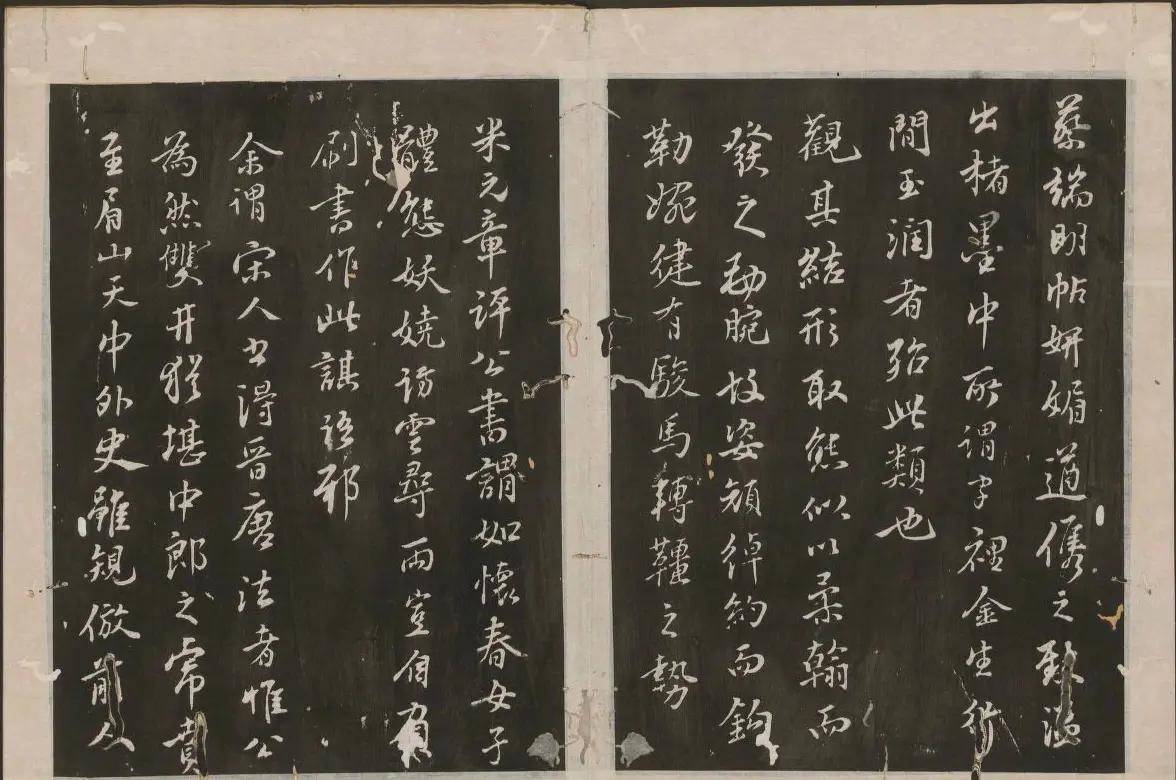 蔡端明帖妍媚遒儁之致溢
出楮墨中所謂字裡金生行
間玉潤者殆此類也
觀其結形取態似以柔翰而
發之勁腕故姿頗綽約而鉤
勒婉健有駿馬轉韁之勢
米元章評公書謂如懷春女子
體態妖嬈訪雲尋雨豈自負
刷書作此謀語邪
余謂宋人書得晉唐法者惟公
為然雙井猶堪中郎之虎賁
至眉山天中外史雖規倣前人